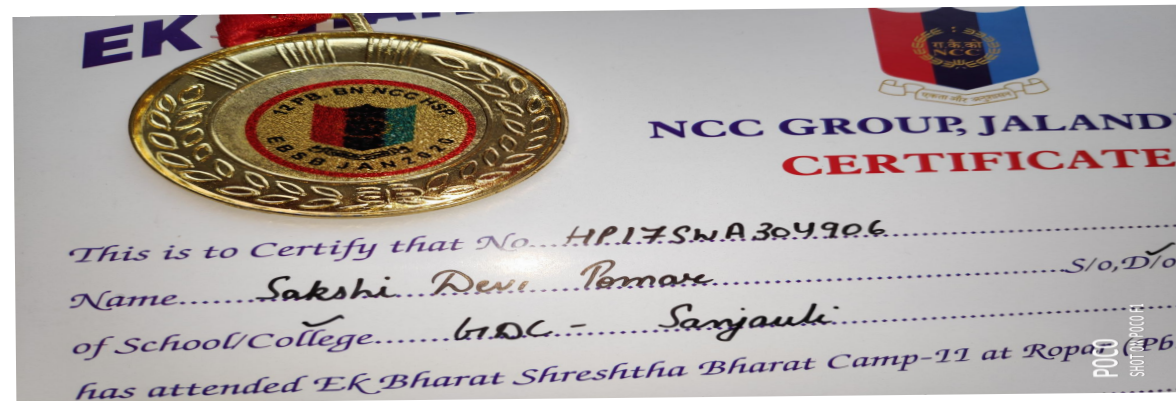 EK
12 PB. BN NCC HSP.
EBSB JAN 2020
रा.कै.को
NCC
एकता और अनुशासन
NCC GROUP, JALAND
CERTIFICATE
This is to Certify that No...HP17SWA304906
Name......Sakshi Devi Pomar......S/o,D/o
of School/College......GDC - Sanjauli
has attended EK Bharat Shreshtha Bharat Camp-II at Ropar (Pb
POCO
SHOT ON POCO F1